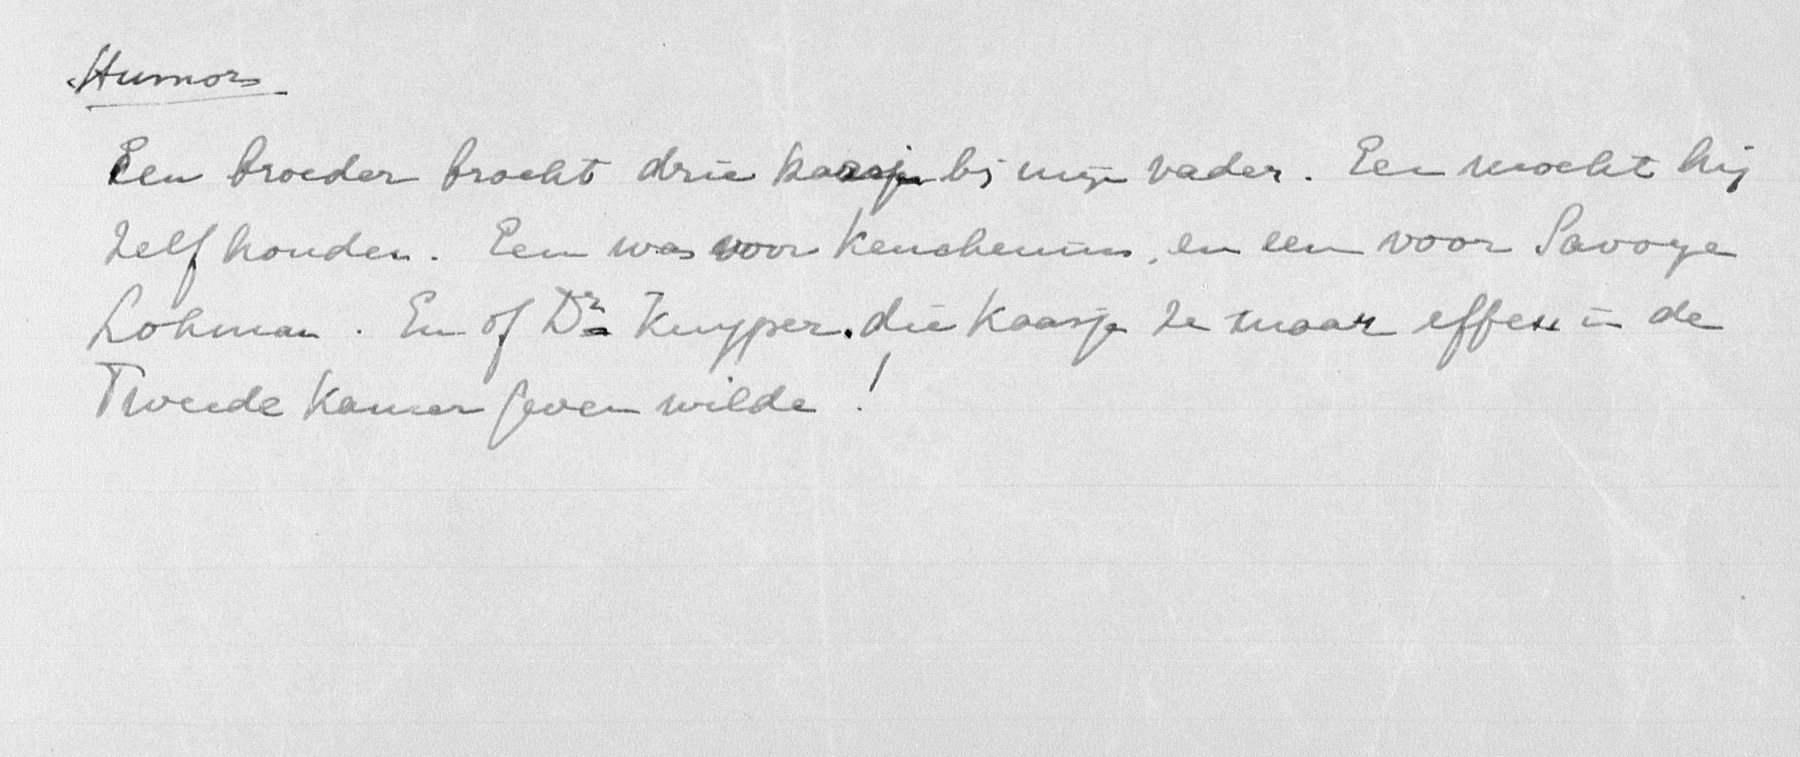 Humor
Een broeder brocht drie kaasjes bij mijn vader. Een mocht hij
zelf houden. Een was voor Keuchenius, en een voor Savoye
Lohman. En of Dr Kuyper die kaasje ze maar effen in de
Tweede Kamer geven wilde!